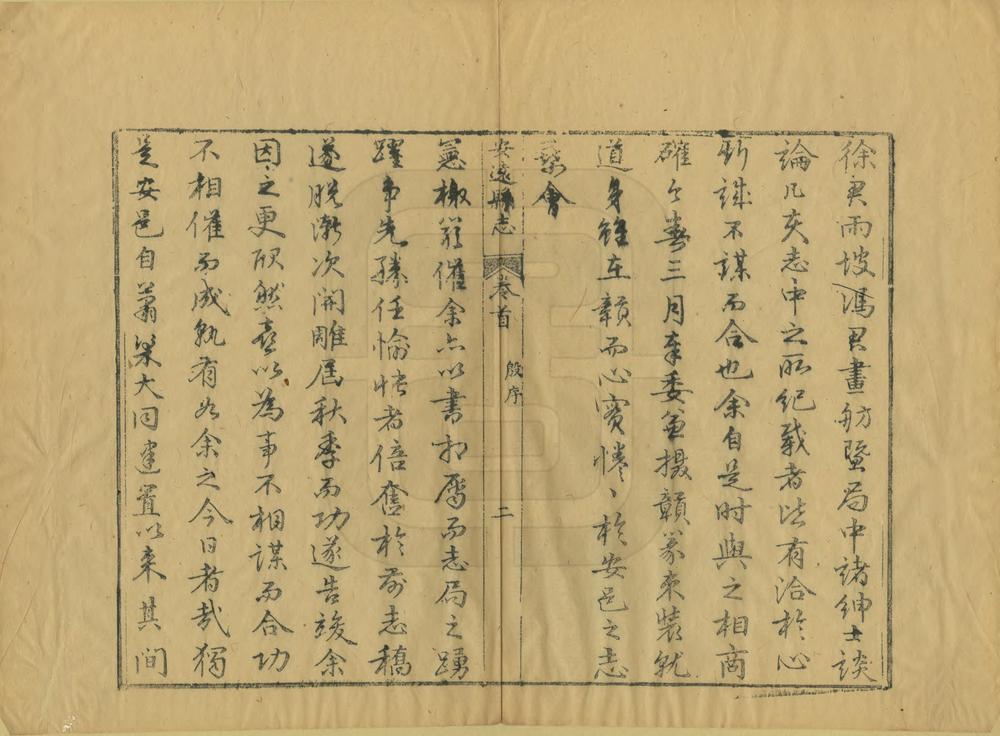 徐君雨坡馮君畫舫暨局中諸紳士談
論凡夫志中之所紀載者法有洽於心
斯誠不謀而合也余自是时與之相商
確今春三月奉委兼摄贛篆束裝就
道身雖在贛而心實惓〻於安邑之志
藜會
安遠縣志 卷首 殷序 二
憲檄嚴催余亦以書相勗而志局之踴
躍争先勝任愉快者倍奮於前志稿
遂脫漸次開雕届秋季而功遂告竣余
因之更欣然喜以為事不相謀而合功
不相催而成孰有如余之今日者哉獨
是安邑自蕭梁大同建置以来其间